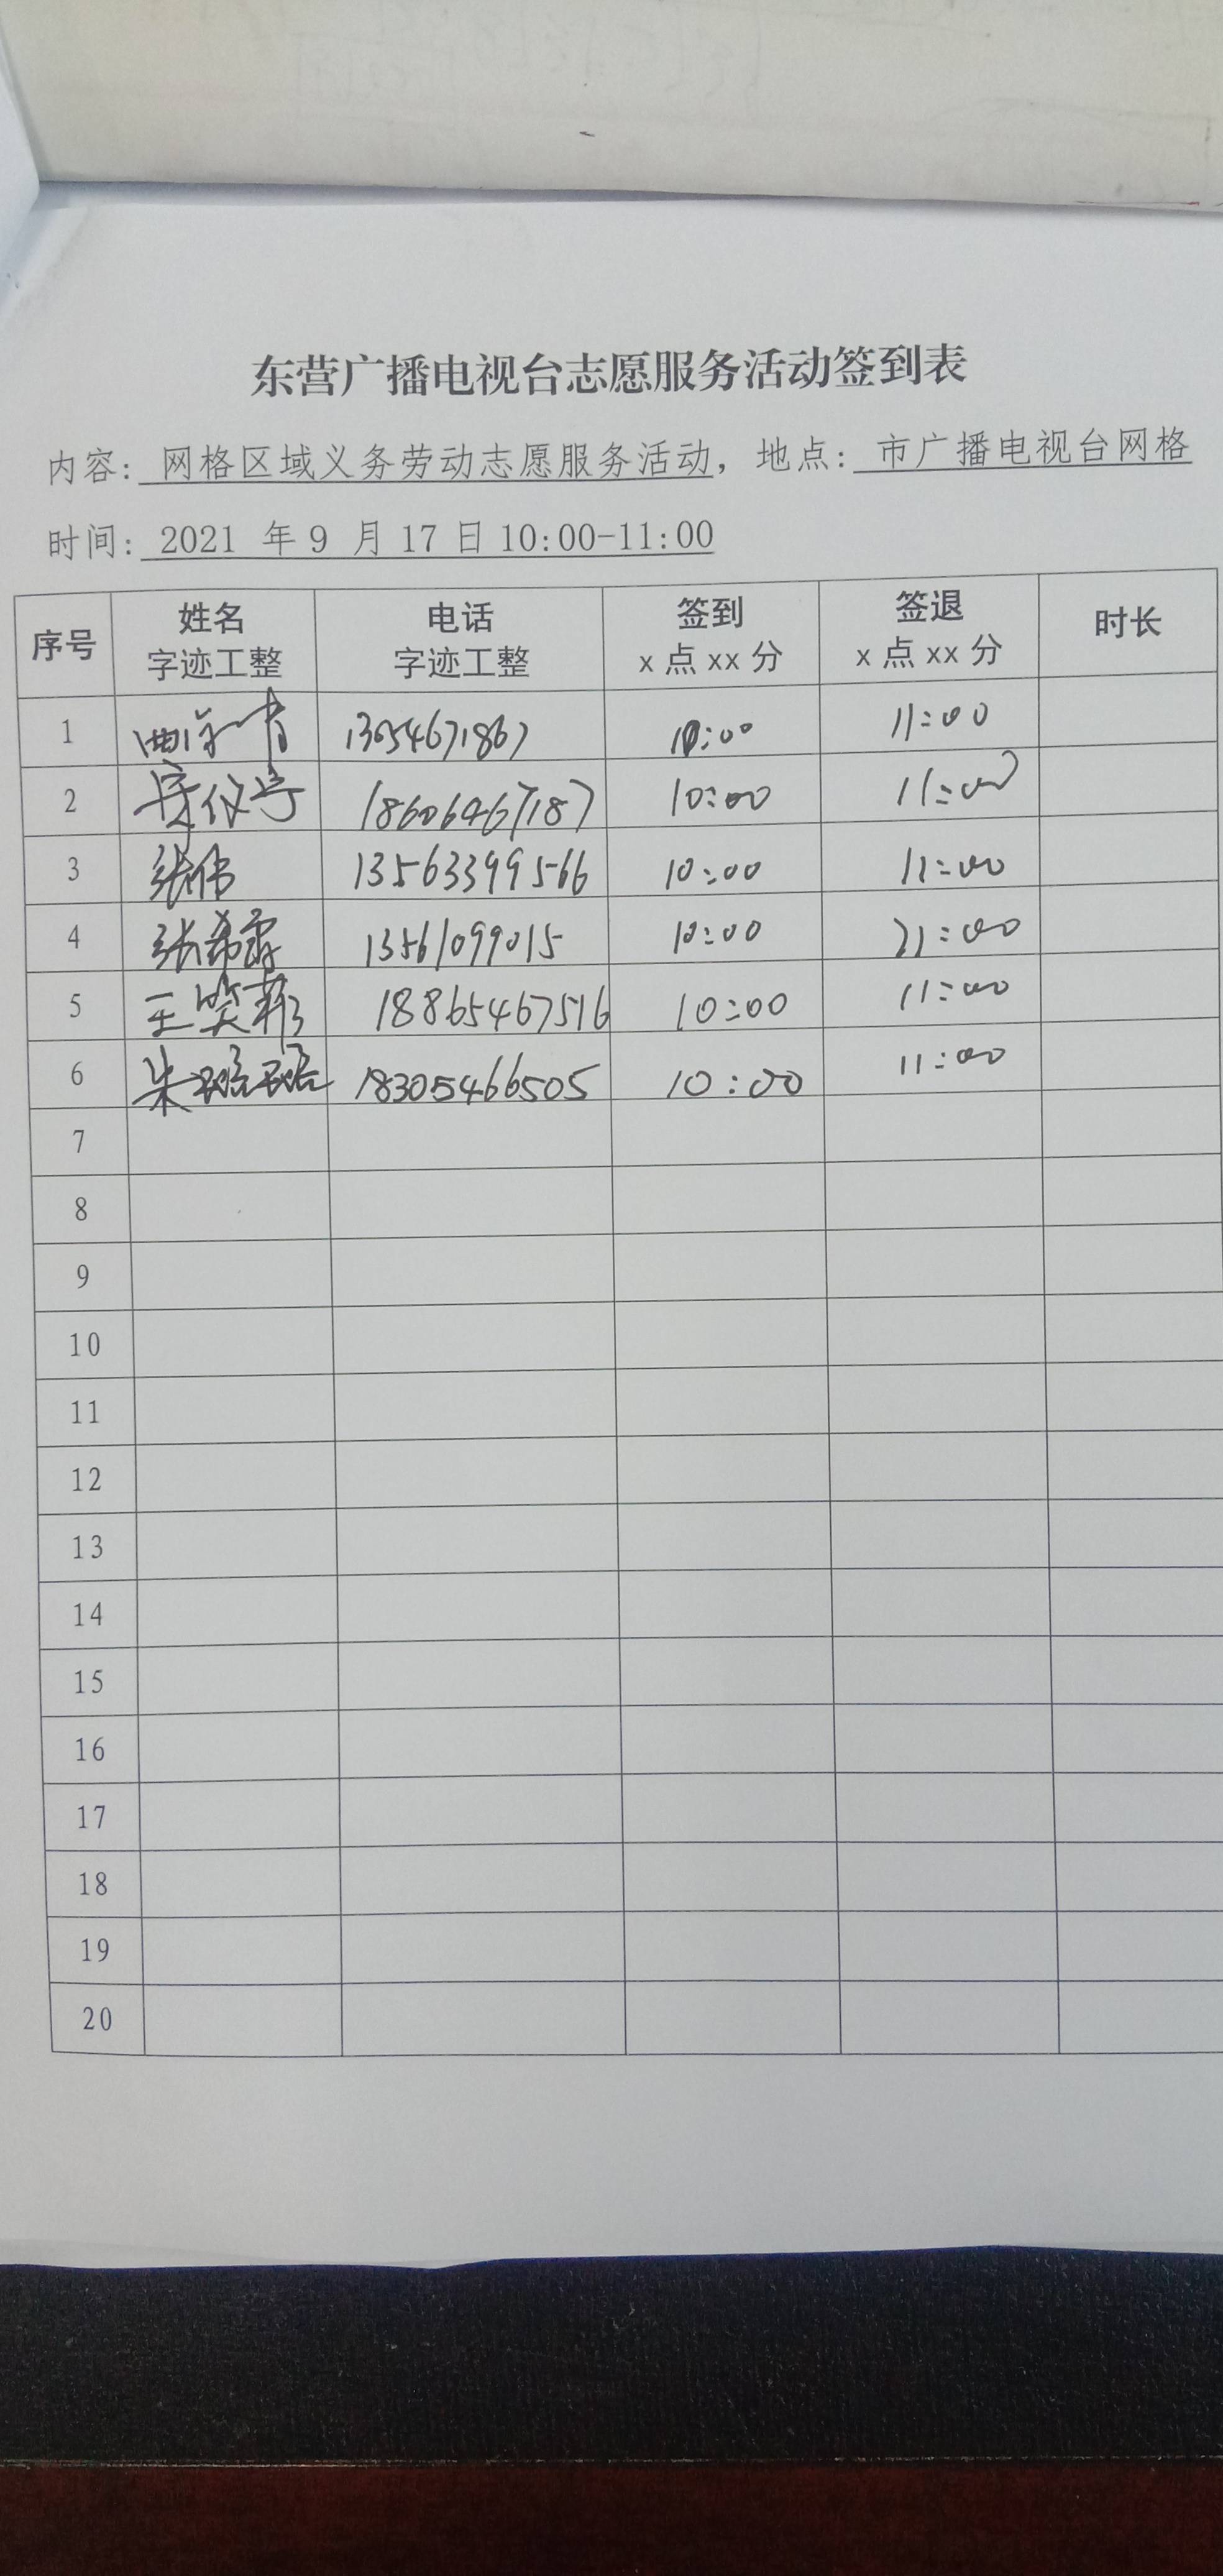 东营广播电视台志愿服务活动签到表
内容: 网格区域义务劳动志愿服务活动, 地点: 市广播电视台网格
时间: 2021 年 9 月 17 日 10:00-11:00
序号 姓名 字迹工整 电话 字迹工整 签到 x 点 xx 分 签退 x 点 xx 分 时长
1 13054671867 10:00 11:00
2 18606467187 10:00 11:00
3 张伟 13563399566 10:00 11:00
4 张希霞 13561099015 10:00 21:00
5 王笑彬 18865467516 10:00 11:00
6 朱琼琼 18305466505 10:00 11:00
7
8
9
10
11
12
13
14
15
16
17
18
19
20